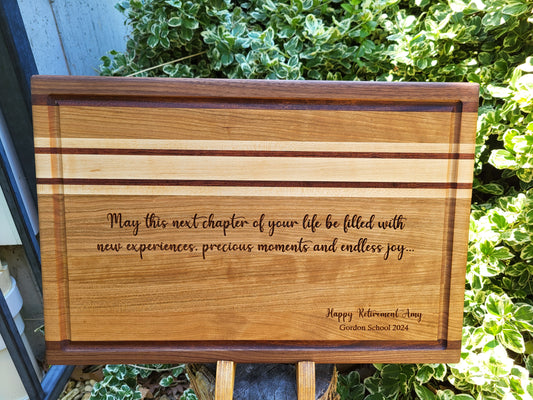 May this next chapter of your life be filled with
new experiences, precious moments and endless joy...
Happy Retirement Amy
Gordon School 2024